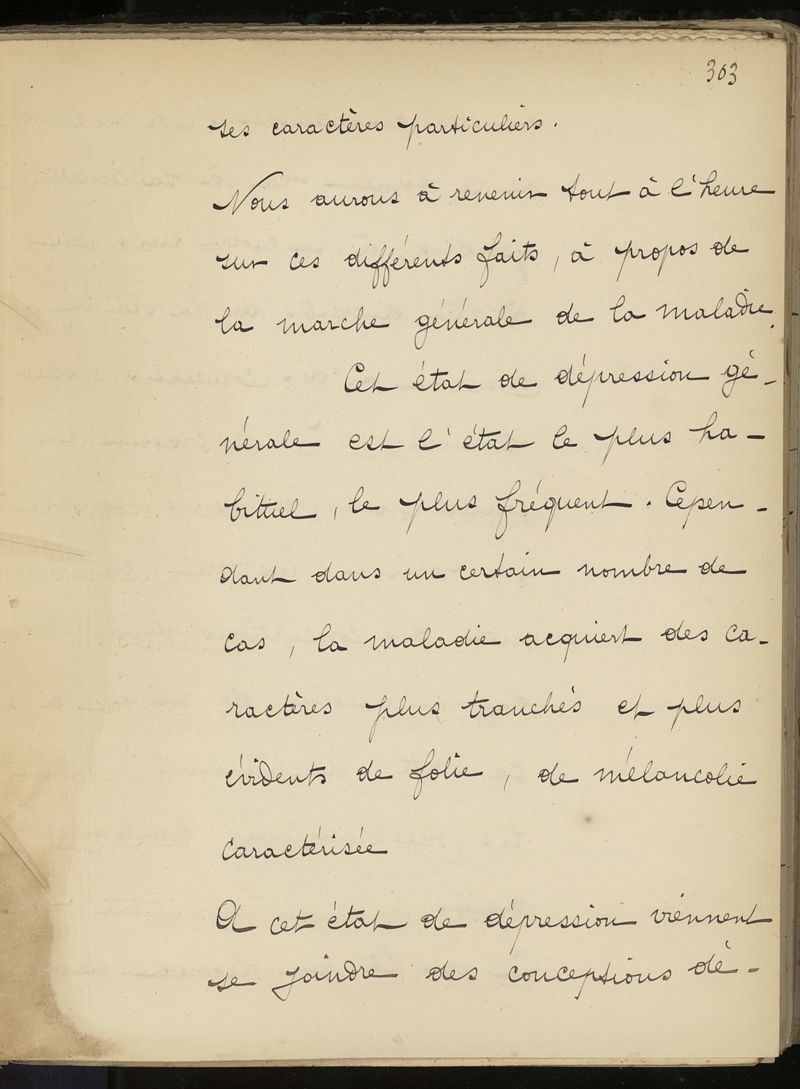 303
ses caractères particuliers.
Nous aurons à revenir tout à l'heure
sur ces différents faits, à propos de
la marche générale de la maladie.
Cet état de dépression gé-
nérale est l'état le plus ha-
bituel, le plus fréquent. Cepen-
dant dans un certain nombre de
cas, la maladie acquiert des ca-
ractères plus tranchés et plus
évidents de folie, de mélancolie
caractérisée
A cet état de dépression viennent
se joindre des conceptions dé-